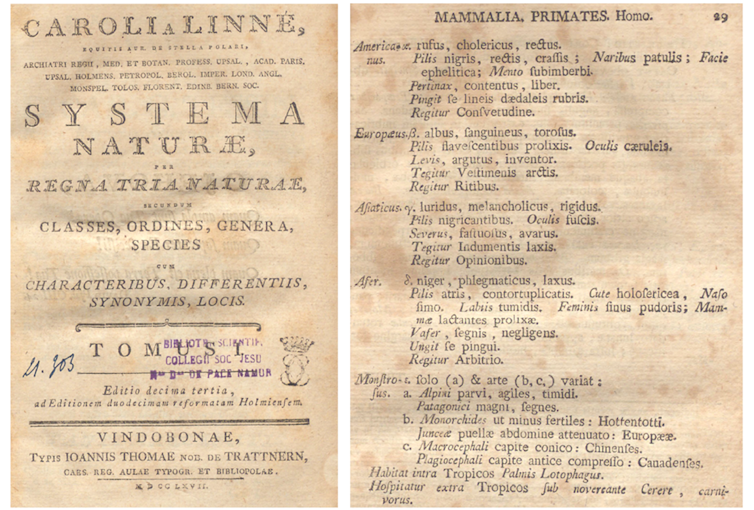 CAROLI A LINNÉ,
EQUITIS AUR. DE STELLA POLARI,
ARCHIATRI REGII, MED. ET BOTAN. PROFESS. UPSAL., ACAD. PARIS.
UPSAL. HOLMENS. PETROPOL. BEROL. IMPER. LOND. ANGL.
MONSPEL. TOLOS. FLORENT. EDINB. BERN. SOC.
SYSTEMA
NATURÆ,
PER
REGNA TRIA NATURÆ,
SECUNDUM
CLASSES, ORDINES, GENERA,
SPECIES
CUM
CHARACTERIBUS, DIFFERENTIIS,
SYNONYMIS, LOCIS.
TOMUS I.
BIBLIOTH. SCIENTIF.
COLLEGII SOC JESU
DE PACE NAMUR
Editio decima tertia,
ad Editionem duodecimam reformatam Holmiensem.
VINDOBONAE,
TYPIS IOANNIS THOMAE NOB. DE TRATTNERN,
CAES. REG. AULAE TYPOGR. ET BIBLIOPOLAE.
MDCCLXVII.
MAMMALIA. PRIMATES. Homo. 29
America- α. rufus, cholericus, rectus.
nus. Pilis nigris, rectis, crassis; Naribus patulis; Facie
ephelitica; Mento subimberbi.
Pertinax, contentus, liber.
Pingit se lineis dædaleis rubris.
Regitur Consvetudine.
Europæus. β. albus, sanguineus, torosus.
Pilis flavescentibus prolixis. Oculis cæruleis.
Levis, argutus, inventor.
Tegitur Vestimenis arctis.
Regitur Ritibus.
Asiaticus. γ. luridus, melancholicus, rigidus.
Pilis nigricantibus. Oculis fuscis.
Severus, fastuosus, avarus.
Tegitur Indumentis laxis.
Regitur Opinionibus.
Afer. δ. niger, phlegmaticus, laxus.
Pilis atris, contortuplicatis. Cute holosericea, Naso
simo. Labiis tumidis. Feminis sinus pudoris; Mam-
mæ lactantes prolixæ.
Vafer, segnis, negligens.
Ungit se pingui.
Regitur Arbitrio.
Monstro- ε. solo (a) & arte (b, c,) variat:
sus. a. Alpini parvi, agiles, timidi.
Patagonici magni, segnes.
b. Monorchides ut minus fertiles: Hottentotti.
Junceæ puellæ abdomine attenuato: Europææ.
c. Macrocephali capite conico: Chinenses.
Plagiocephali capite antice compresso: Canadenses.
Habitat intra Tropicos Palmis Lotophagus.
Hospitatur extra Tropicos sub novercante Cerere, carni-
vorus.